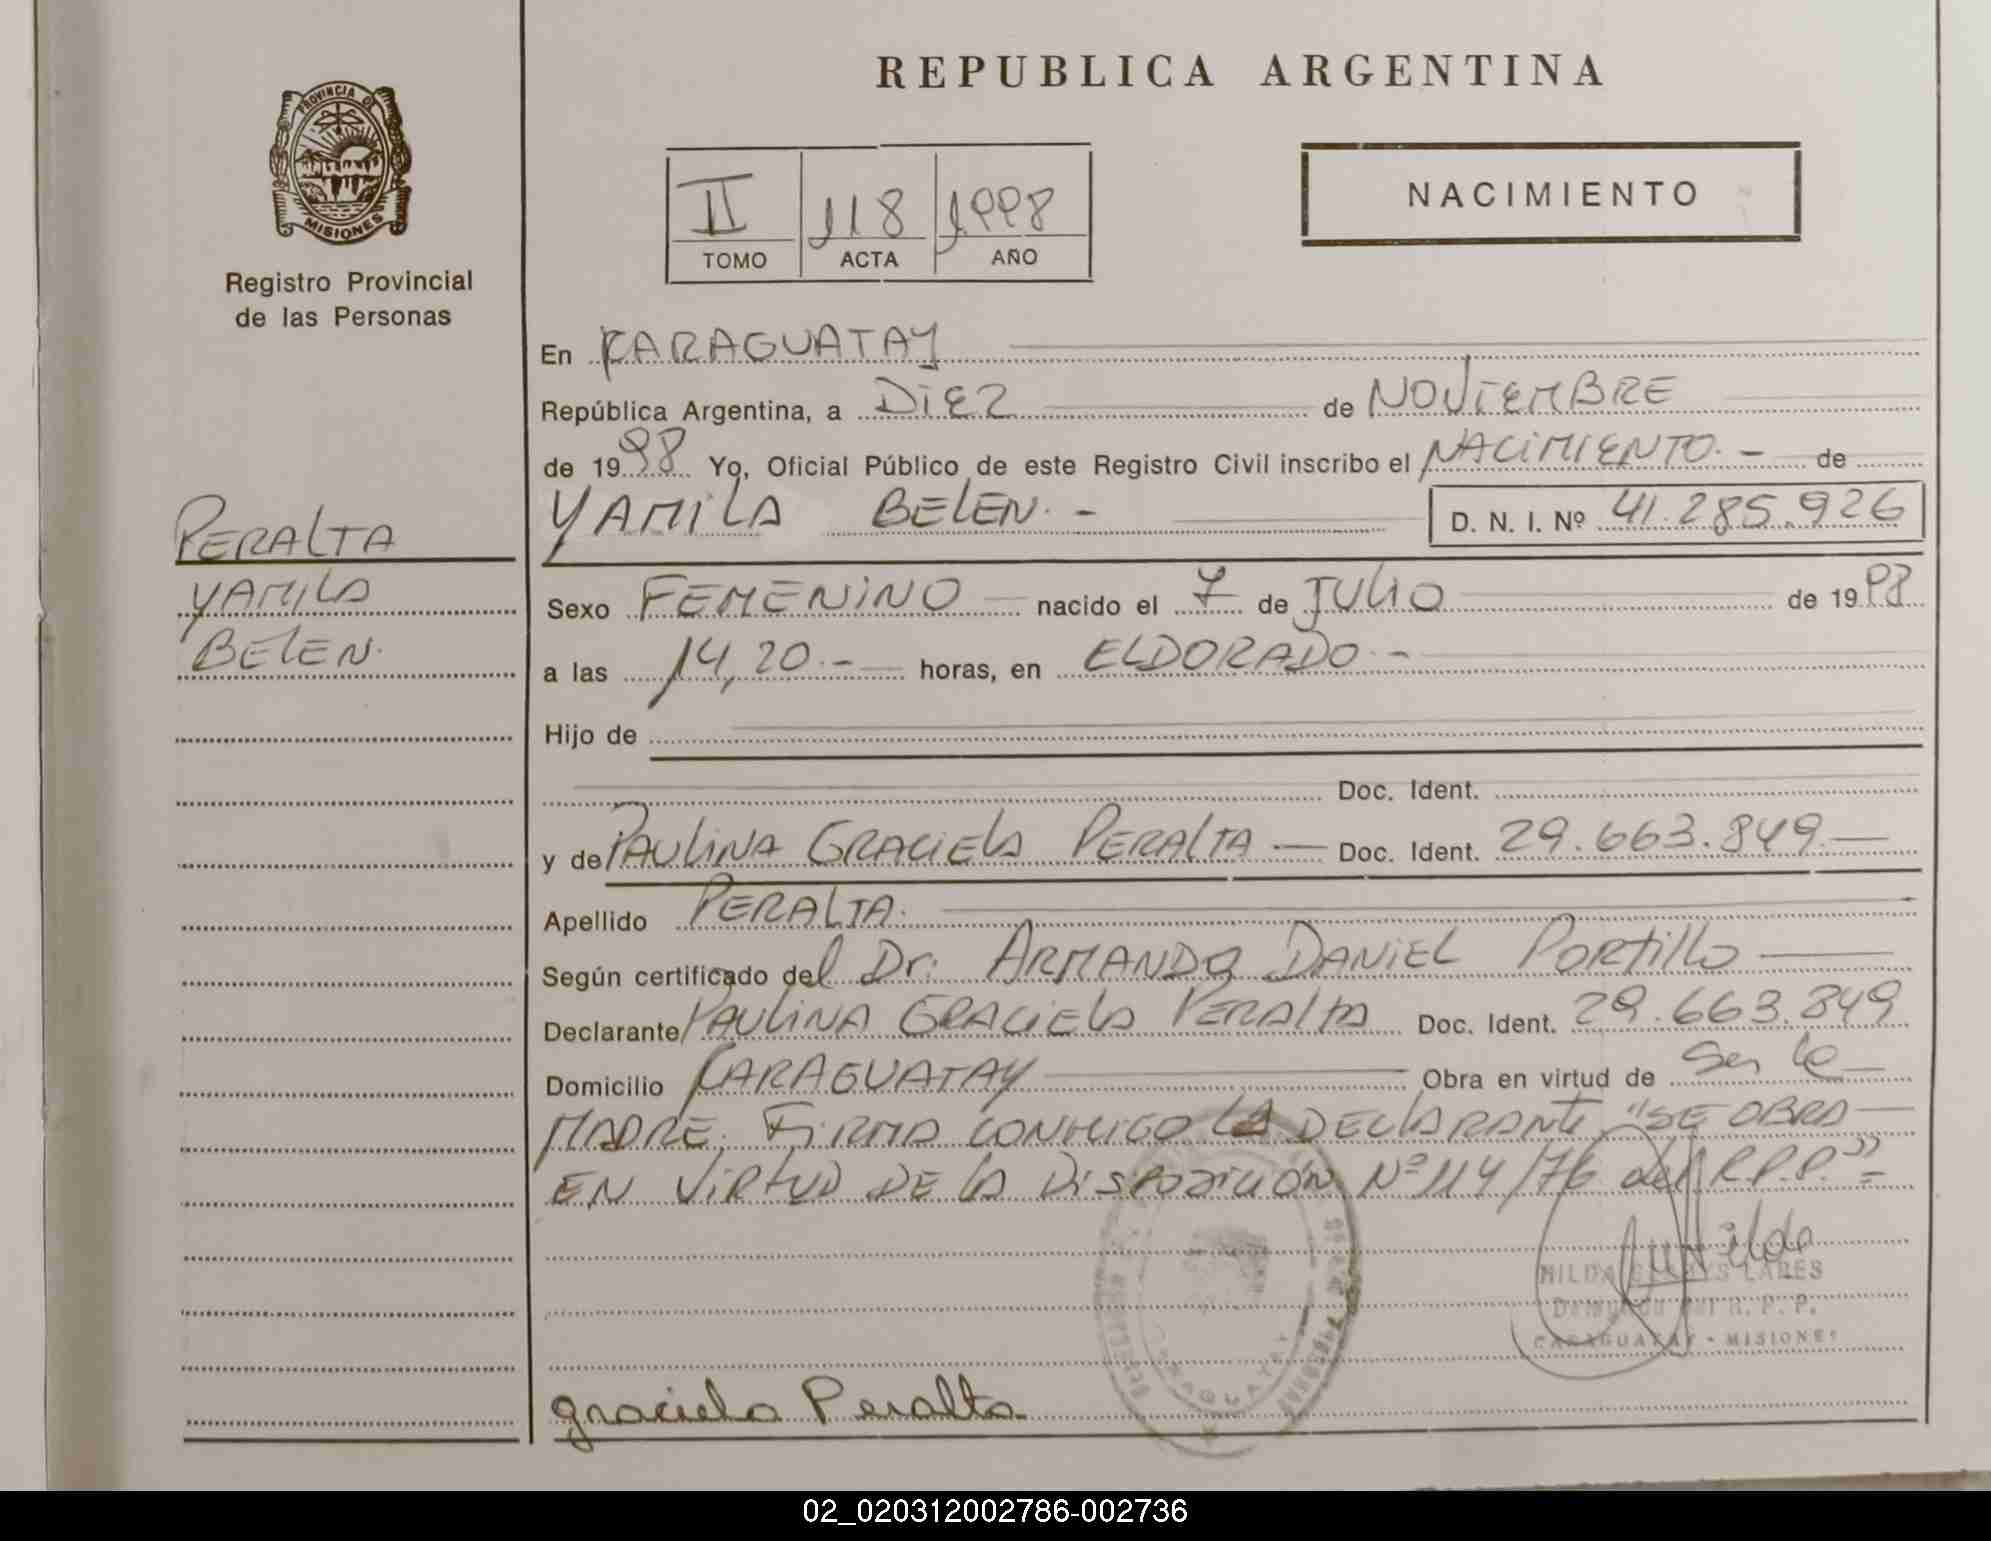 REPUBLICA ARGENTINA
PROVINCIA DE
MISIONES
Registro Provincial
de las Personas
II 118 1998
TOMO ACTA AÑO
NACIMIENTO
En CARAGUATAY
República Argentina, a DIEZ de NOVIEMBRE
de 1998 Yo, Oficial Público de este Registro Civil inscribo el NACIMIENTO.- de
YAMILA BELEN.- D. N. I. Nº 41.285.926
PERALTA
YAMILA
BELEN.
Sexo FEMENINO nacido el 7 de JULIO de 1998
a las 14,20.- horas, en ELDORADO.-
Hijo de
Doc. Ident.
y de PAULINA GRACIELA PERALTA — Doc. Ident. 29.663.849.—
Apellido PERALTA.
Según certificado del Dr. ARMANDO DANIEL PORTILLO
Declarante PAULINA GRACIELA PERALTA Doc. Ident. 29.663.849
Domicilio CARAGUATAY Obra en virtud de Ser la
MADRE. FIRMA CONMIGO LA DECLARANTE "SE OBRA
EN VIRTUD DE LA DISPOSICIÓN Nº 114/76 del R.P.P."=
CARAGUATAY
LARES
R. P. P.
CARAGUATAY - MISIONES
graciela Peralta
02_020312002786-002736